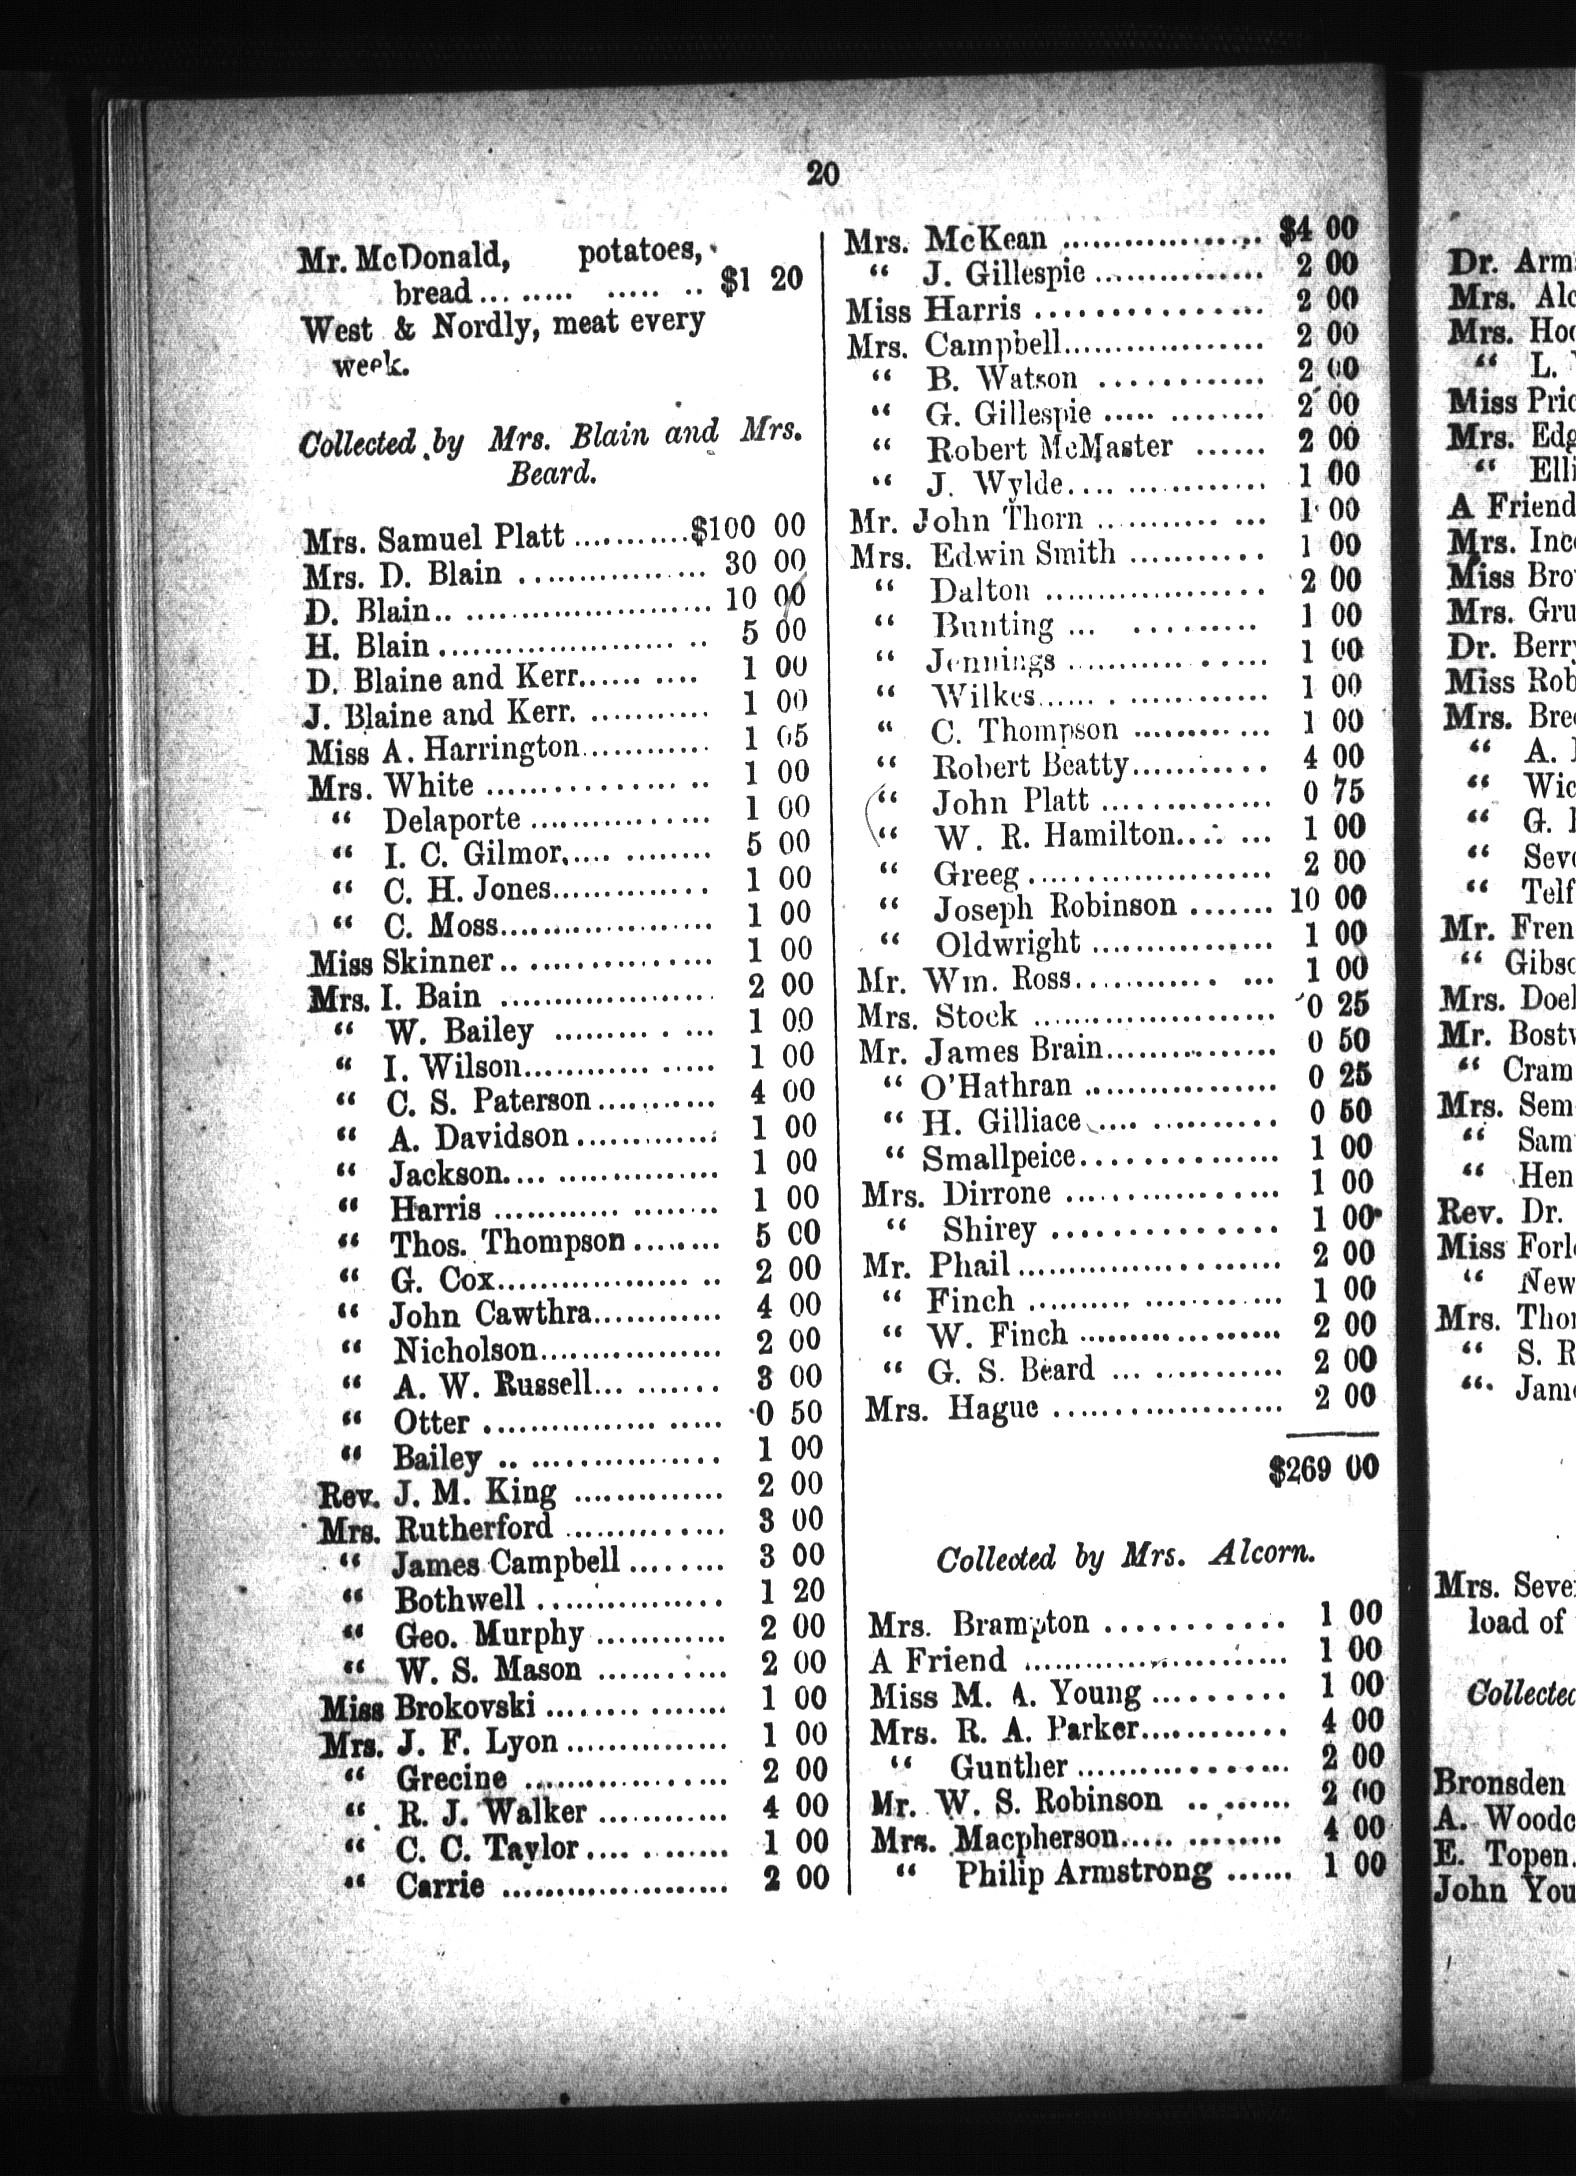 20
Mr. McDonald, potatoes,
bread ... ..... ..... .. $1 20
West & Nordly, meat every
week.
Collected by Mrs. Blain and Mrs.
Beard.
Mrs. Samuel Platt ...........$100 00
Mrs. D. Blain ................. 30 00
D. Blain.. ....................... 10 00
H. Blain ...................... .. 5 00
D. Blaine and Kerr...... .... 1 00
J. Blaine and Kerr. ........... 1 00
Miss A. Harrington............ 1 05
Mrs. White ................ .. 1 00
“ Delaporte ................ 1 00
“ I. C. Gilmor,.... ........ 5 00
“ C. H. Jones.............. 1 00
“ C. Moss.................... 1 00
Miss Skinner.. ................ 1 00
Mrs. I. Bain .................... 2 00
“ W. Bailey ......... . ... 1 00
“ I. Wilson............ ..... 1 00
“ C. S. Paterson........... 4 00
“ A. Davidson............. 1 00
“ Jackson.... ............... 1 00
“ Harris ............ ........ 1 00
“ Thos. Thompson........ 5 00
“ G. Cox................... .. 2 00
“ John Cawthra............ 4 00
“ Nicholson................. 2 00
“ A. W. Russell... ........ 3 00
“ Otter ................ ..... 0 50
“ Bailey .. .................. 1 00
Rev. J. M. King .............. 2 00
Mrs. Rutherford .............. 3 00
“ James Campbell ........ 3 00
“ Bothwell .................. 1 20
“ Geo. Murphy ............ 2 00
“ W. S. Mason ............ 2 00
Miss Brokovski ........ ....... 1 00
Mrs. J. F. Lyon ............... 1 00
“ Grecine ................... 2 00
“ R. J. Walker ............ 4 00
“ C. C. Taylor.... . ...... 1 00
“ Carrie ..................... 2 00
Mrs. McKean ................... $4 00
“ J. Gillespie ............... 2 00
Miss Harris ................ 2 00
Mrs. Campbell.................. 2 00
“ B. Watson ............ 2 00
“ G. Gillespie ..... ......... 2 00
“ Robert McMaster ...... 2 00
“ J. Wylde.... ............ 1 00
Mr. John Thorn .. ......... ... 1 00
Mrs. Edwin Smith ........... 1 00
“ Dalton .................. 2 00
“ Bunting ... .......... 1 00
“ Jennings ........... . ..... 1 00
“ Wilkes...... . ............ 1 00
“ C. Thompson ......... ... 1 00
“ Robert Beatty........... 4 00
“ John Platt ............... 0 75
“ W. R. Hamilton.... ... 1 00
“ Greeg ..................... 2 00
“ Joseph Robinson ....... 10 00
“ Oldwright ................ 1 00
Mr. Wm. Ross............ . ... 1 00
Mrs. Stock ...................... 0 25
Mr. James Brain................ 0 50
“ O'Hathran ................. 0 25
“ H. Gilliace .... ........... 0 50
“ Smallpeice............... 1 00
Mrs. Dirrone ................. 1 00
“ Shirey ............... 1 00
Mr. Phail ....................... 2 00
“ Finch .......... ............ 1 00
“ W. Finch .................. 2 00
“ G. S. Beard ... ........... 2 00
Mrs. Hague .................... 2 00
$269 00
Collected by Mrs. Alcorn.
Mrs. Brampton ........... 1 00
A Friend ....................... 1 00
Miss M. A. Young .......... 1 00
Mrs. R. A. Parker............ 4 00
“ Gunther .................. 2 00
Mr. W. S. Robinson .. ....... 2 00
Mrs. Macpherson..... ........ 4 00
“ Philip Armstrong ...... 1 00
Dr. Arm
Mrs. Alc
Mrs. Hoo
“ L.
Miss Pric
Mrs. Edg
“ Elli
A Friend
Mrs. Ince
Miss Bro
Mrs. Gru
Dr. Berry
Miss Rob
Mrs. Bre
“ A.
“ Wic
“ G.
“ Seve
“ Telf
Mr. Fren
“ Gibso
Mrs. Doel
Mr. Bostw
“ Cram
Mrs. Sem
“ Sam
“ Hen
Rev. Dr.
Miss Forl
“ New
Mrs. Tho
“ S. R
“ Jam
Mrs. Seve
load of
Collected
Bronsden
A. Woodc
E. Topen.
John You